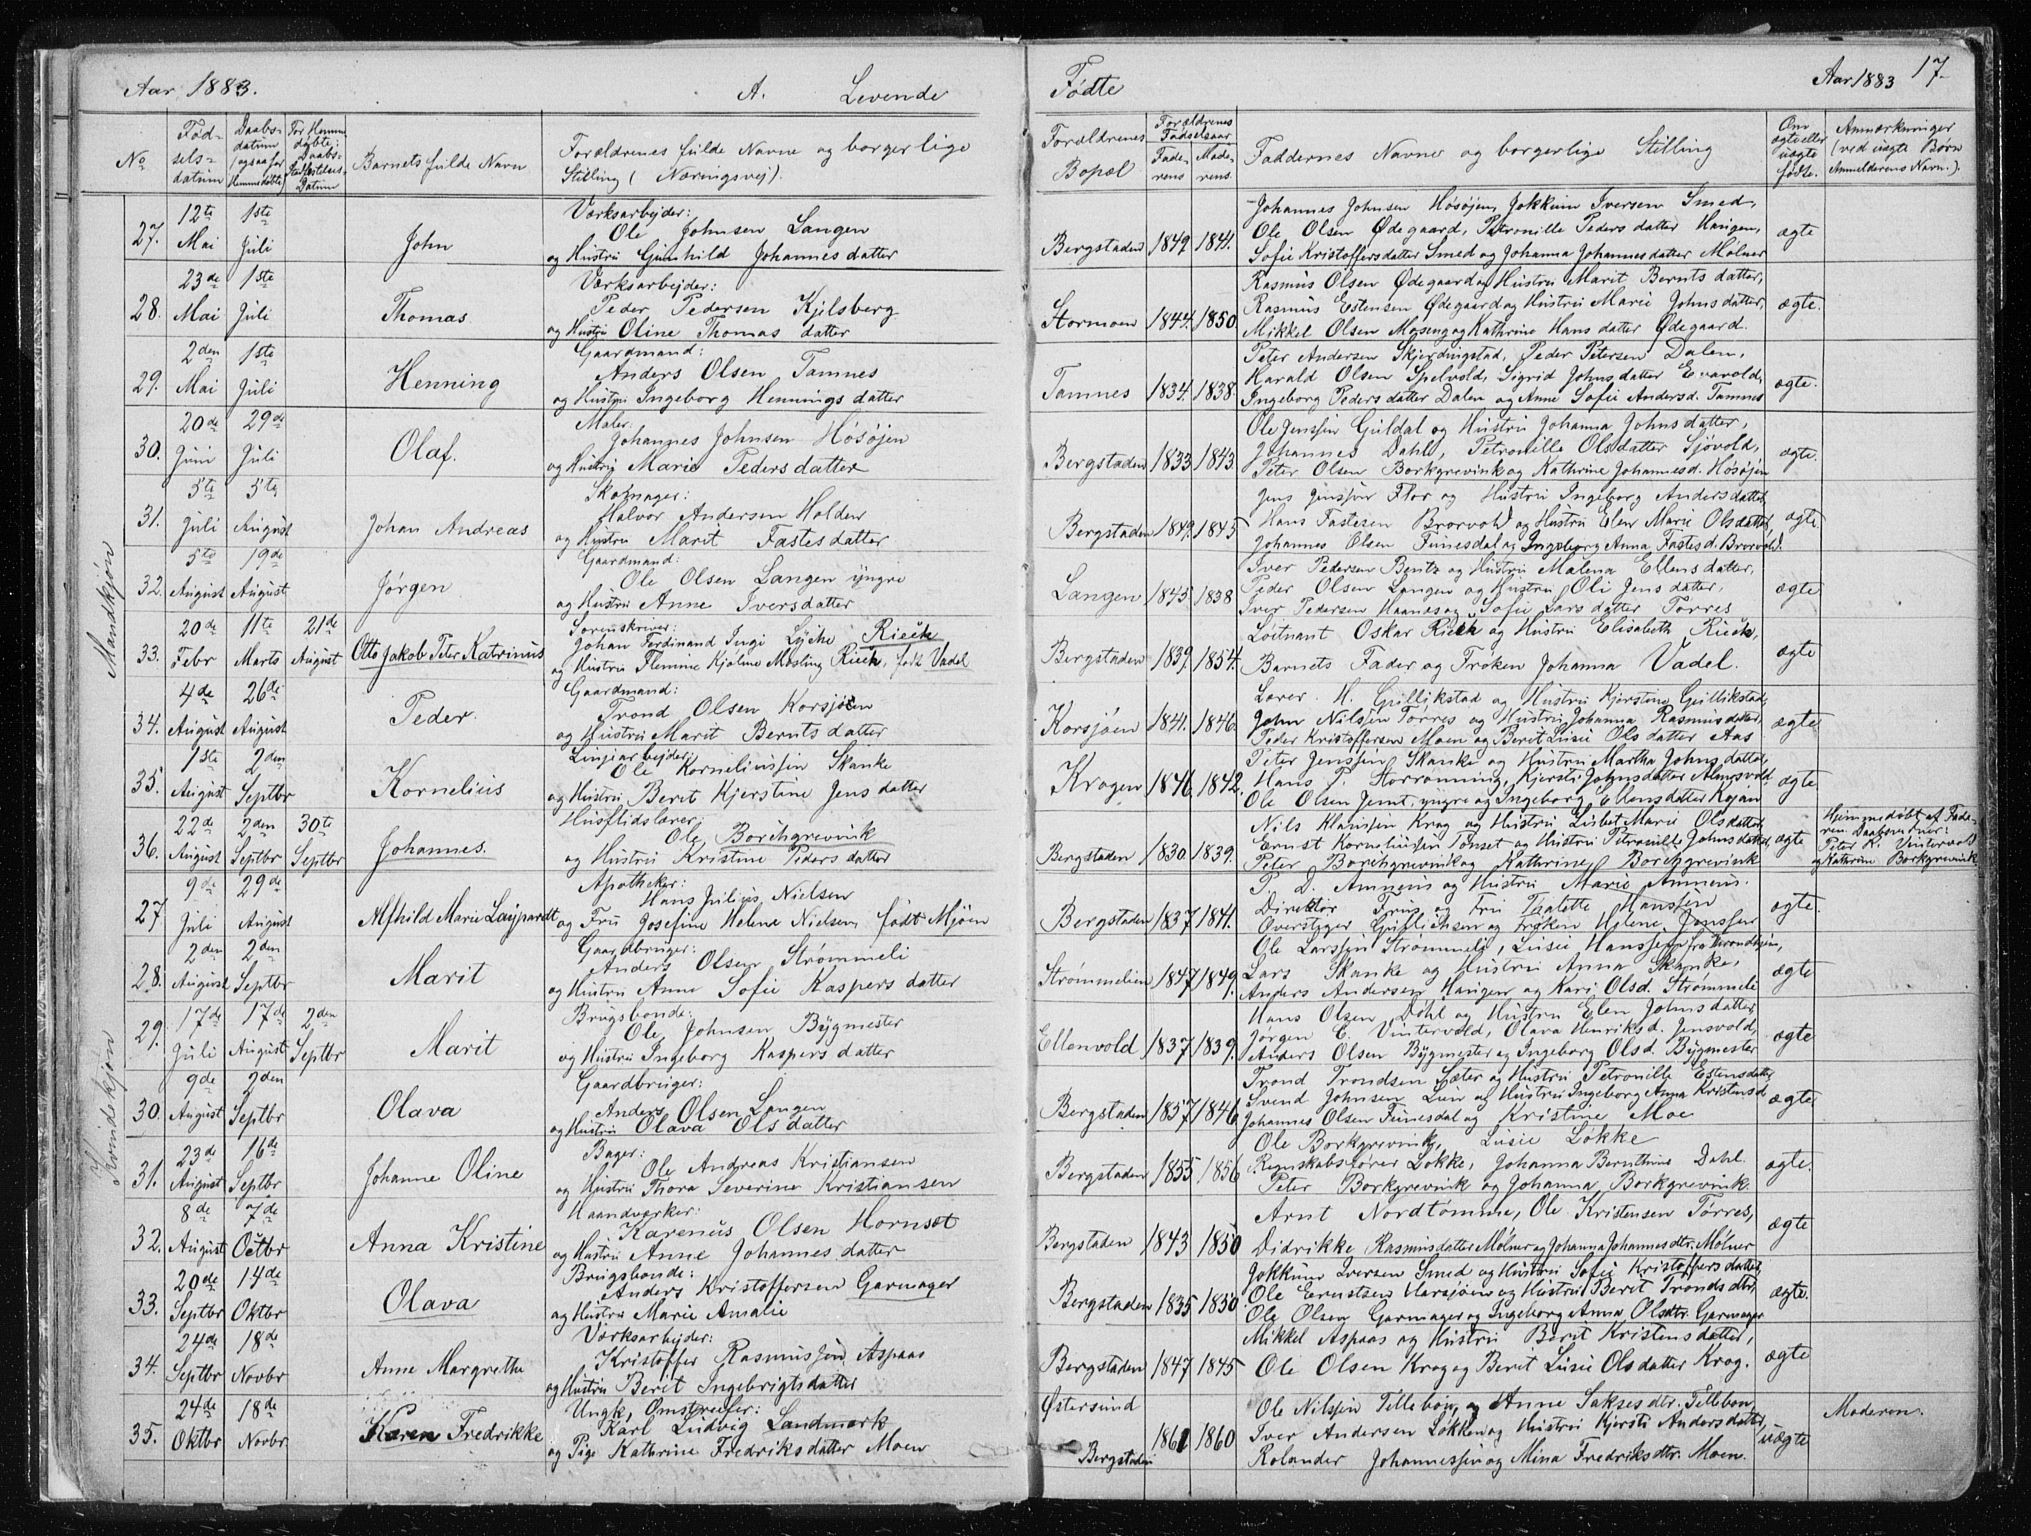 Aar 1883. A. Levende
Fødte Aar 1883 17.
No Fødselsdatum Daabsdatum (ogsaa for Hjemmedøbte) For Hjemmedøbte: Daabs-Stadfæstelses-Datum Barnets fulde Navn Forældrenes fulde Navne og borgerlige Stilling (Næringsvej).
Forældrenes Bopæl Forældrenes Fødselsaar Faderens Moderens Faddernes Navne og borgerlige Stilling Om ægte eller uægte fødte. Anmærkninger (ved uægte Børn Anmelderens Navn.).
Mandkjøn
27. 12te Mai 1ste Juli John
Værksarbejder:
Ole Johnsen Langen
og Hustru Gunhild Johannesdatter
Bergstaden 1849 1841.
Johannes Johnsen Høsøjen, Jokkum Iversen Smed,
Ole Olsen Ødegaard, Petronille Pedersdatter Haugen,
Sofie Kristoffersdatter Smed og Johanna Johannesdatter Mølner
ægte
28. 23de Mai 1ste Juli Thomas
Værksarbejder:
Peder Pedersen Kjelsberg
og Hustru Oline Thomasdatter
Stormoen 1844. 1850.
Rasmus Olsen Ødegaard og Hustru Marit Berntsdatter,
Rasmus Estensen Ødegaard og Hustru Marie Johnsdatter,
Mikkel Olsen Moseng og Kathrine Hansdatter Ødegaard.
ægte.
29. 2den Mai 1ste Juli Henning
Gaardmand:
Anders Olsen Tamnes
og Hustru Ingeborg Henningsdatter
Tamnes 1834. 1838.
Peter Andersen Skjerdingstad, Peder Petersen Dalen,
Harald Olsen Spelvold, Sigrid Johnsdatter Evavold,
Ingeborg Pedersdatter Dalen og Anne Sofie Andersd. Tamnes
ægte.
30. 20de Juni 29de Juli Olaf.
Maler.
Johannes Johnsen Høsøjen
og Hustru Marie Pedersdatter
Bergstaden 1833 1843.
Ole Jenssen Guldal og Hustru Johanna Johnsdatter,
Johannes Dahl, Petronille Olsdatter Sjøvold,
Peter Olsen Borkgrevink og Kathrine Johannesd. Høsøjen
ægte.
31. 5te Juli 5te August Johan Andreas
Skomager:
Halvor Andersen Holden
og Hustru Marit Fastesdatter
Bergstaden 1849. 1845
Jens Jenssen Flor og Hustru Ingeborg Andersdatter
Hans Fastesen Brorvold og Hustru Elen Marie Olsdatter
Johannes Olsen Funesdal og Ingeborg Anna Fastesd. Brorvold.
ægte.
32. 5te August 19de August Jørgen
Gaardmand:
Ole Olsen Langen yngre
og Hustru Anne Iversdatter
Langen 1843 1838
Iver Pedersen Bentz og Hustru Malena Ellensdatter,
Peder Olsen Langen og Hustru Oli Jensdatter,
Iver Pedersen Haanes og Sofie Larsdatter Tørres
ægte
33. 20de Febr 11te Marts 21de August Otto Jakob Peter Katrinus
Sorenskriver:
Johan Ferdinand Ingi Lyche Rieck
og Hustru Flemme Kjelme Møsting Rieck, født Vadel
Bergstaden 1839. 1854.
Løitnant Oskar Rieck og Hustru Elisabeth Rieck,
Barnets Fader og Frøken Johanna Vadel.
ægte
34. 4de August 26de August Peder.
Gaardmand:
Trond Olsen Korsjøen
og Hustru Marit Berntsdatter
Korsjøen 1841. 1846.
Lærer H. Gullikstad og Hustru Kjerstine Gullikstad,
John Nilssen Tørres og Hustru Johanna Rasmusdatter,
Peder Kristoffersen Moen og Berit Lusie Olsdatter Aas
ægte
35. 1ste August 2den Septbr Kornelius
Linjearbejder
Ole Korneliussen Skanke
og Hustru Berit Kjerstine Jensdatter
Kragen 1846. 1842.
Peter Jenssen Skanke og Hustru Martha Johnsdatter
Hans P. Storrønning, Kjersti Johnsdatter Almosvold
Ole Olsen Jemt, yngre og Ingeborg Ellensdatter Kojan
ægte
36. 22de August 2den Septbr 30te Septbr Johannes.
Husflidslærer:
Ole Borchgrevink
og Hustru Kristine Pedersdatter
Bergstaden 1830. 1839.
Nils Klaussen Krog og Hustru Lisbet Marie Olsdatter
Ernst Korneliussen Tønset og Hustru Petronille Johnsdatter
Peter Borchgrevink og Kathrine Borchgrevink
ægte Hjemmedøbt af Faderen. Daabsvidner: Peter K. Vintervold og Kathrine Borkgrevink
Kvindekjøn
27. 9de Juli 29de August Alfhild Marie Laypardt
Apotheker:
Hans Julius Nielsen
og Fru Josefine Helene Nielsen, født Mjøen
Bergstaden 1837 1841.
P. D. Amneus og Hustru Marie Amneus.
Direktør Hansen
Overstyger og Frøken Helene Jenssen
ægte.
28. 2den August 2den Septbr Marit
Gaardbruger:
Anders Olsen Strømmeli
og Hustru Anne Sofie Kaspersdatter
Strømmelien 1847 1849.
Ole Larssen Strømmeli, Lusie Hanssen fra Trondhjem,
Lars Skanke og Hustru Anna Skanke,
Anders Andersen Haugen og Kari Olsd. Strømmeli
ægte
29. 17de Juli 17de August 2den Septbr Marit
Brugsbonde:
Ole Johnsen Bygmester
og Hustru Ingeborg Kaspersdatter
Ellenvold 1837 1839.
Hans Olsen Dahl og Hustru Elen Johnsdatter
Jørgen E. Vintervold, Olava Henriksd. Jensvold,
Anders Olsen Bygmester og Ingeborg Olsd. Bygmester
ægte
30. 9de August 2den Septbr Olava
Gaardbruger:
Anders Olsen Langen
og Hustru Olava Olsdatter
Bergstaden 1857 1846
Trond Trondsen Sæter og Hustru Petronille Estensdatter,
Svend Johnsen Lun og Hustru Ingeborg Anna Kristensd
Johannes Olsen Funesdal og Kristine Moe
ægte
31. 23de August 16de Septbr Johanne Oline
Bager:
Ole Andreas Kristiansen
og Hustru Thora Severine Kristiansen
Bergstaden 1855 1856
Ole Borkgrevink, Lusie Løkke
Regnskabsfører Løkke, Johanna Bernthine Dahl.
Peter Borkgrevink og Johanna Borkgrevink.
ægte.
32. 8de August 7de Octbr Anna Kristine
Haandværker:
Karenus Olsen Hornset
og Hustru Anne Johannesdatter
Bergstaden 1843 1850
Arnt Nordtømme, Ole Kristensen Tørres,
Didrikke Rasmusdatter Mølner og Johanna Johannesdtr. Mølner
ægte
33. 20de Septbr 14de Oktbr Olava
Brugsbonde:
Anders Kristoffersen Garmager
og Hustru Marie Amalie
Bergstaden 1835 1850.
Jokkum Iversen Smed og Hustru Sofie Kristoffersdatter,
Ole Erntsen Harsjøen og Hustru Berit Trondsdtr.
Ole Olsen Garmager og Ingeborg Anna Olsdtr. Garmager
ægte.
34. 24de Septbr 18de Novbr Anne Margrethe
Værksarbejder:
Kristoffer Rasmussen Aspaas
og Hustru Berit Ingebrigtsdatter
Bergstaden 1847 1845
Mikkel Aspaas og Hustru Berit Kristensdatter,
Ole Olsen Krog og Berit Lusie Olsdatter Krog.
ægte
35. 24de Oktbr 18de Novbr Karen Fredrikke
Ungk, Omstreifer:
Karl Ludvig Landmark
og Pige Kathrine Fredriksdatter Moen
Østersund
Bergstaden 1861 1860
Ole Nilssen Tillebøn og Anne Saksesdtr. Tillebøn,
Iver Andersen Løkken og Hustru Kjersti Andersdatter,
Rolander Johannessen og Mina Fredriksdtr. Moen.
uægte Moderen.